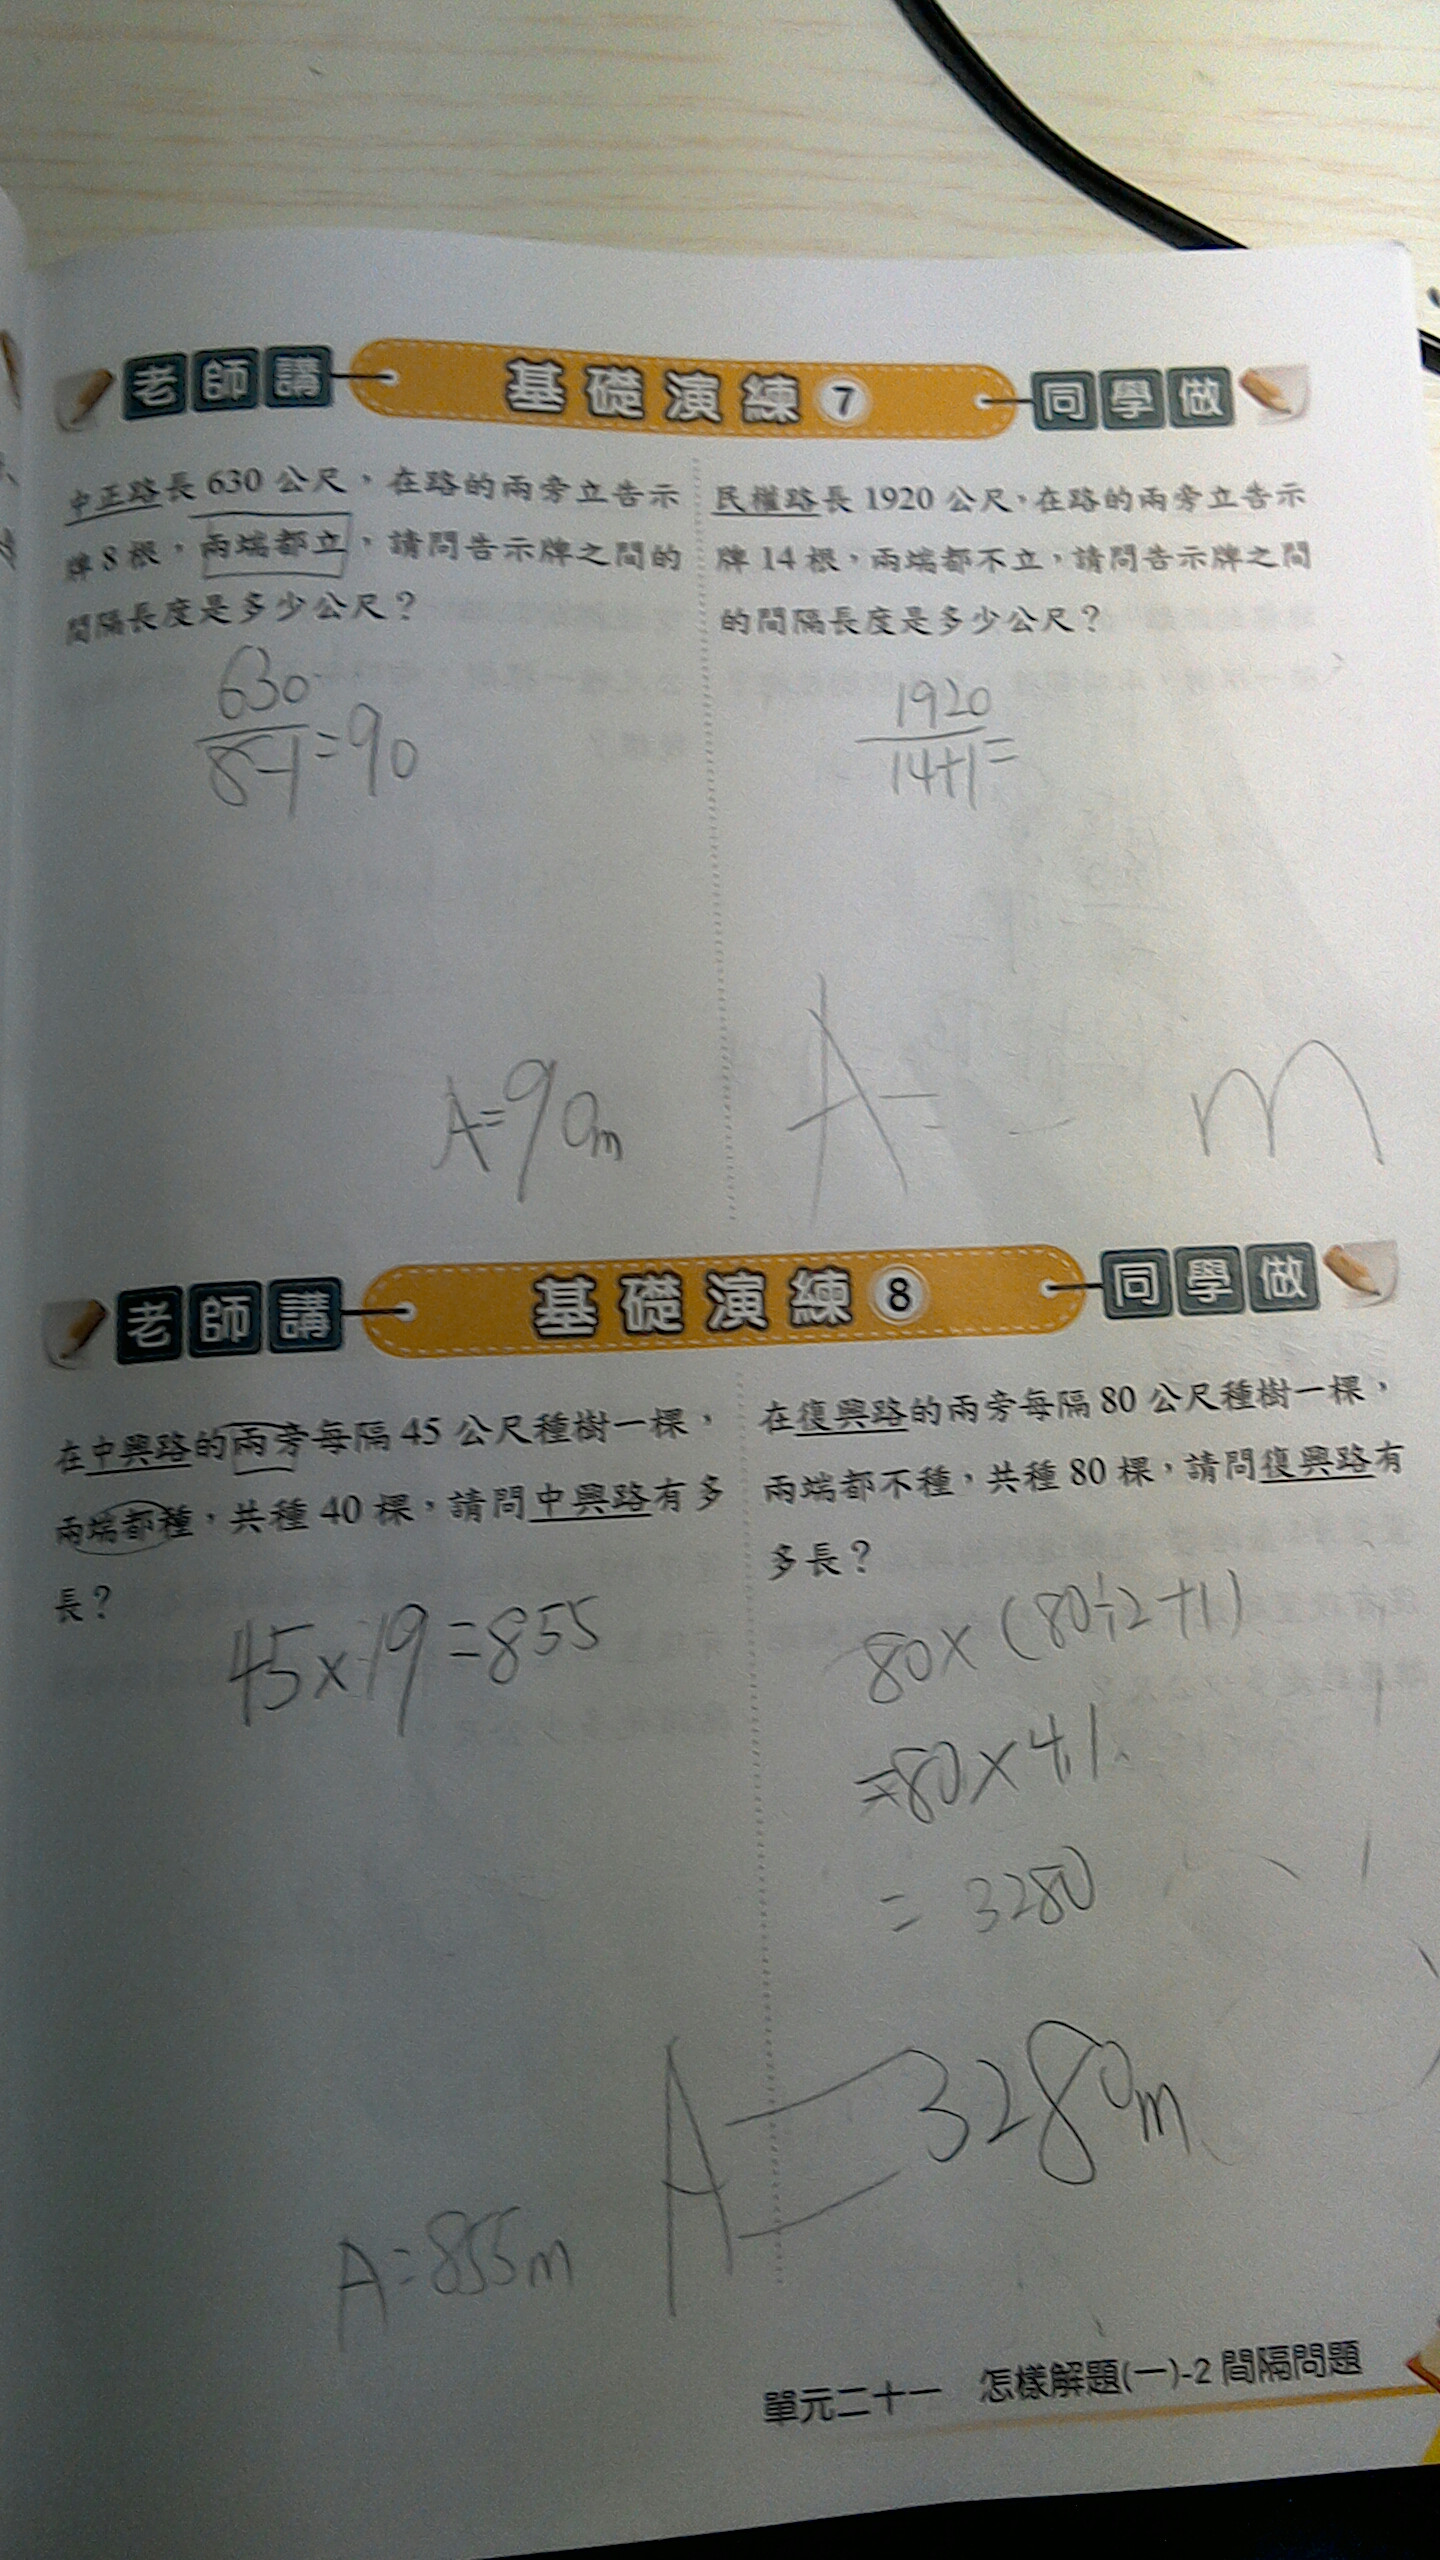 老師講 基礎演練7 同學做
中正路長 630 公尺，在路的兩旁立告示
牌 8 根，兩端都立，請問告示牌之間的
間隔長度是多少公尺？
630
8-1 =90
A=90m
民權路長 1920 公尺，在路的兩旁立告示
牌 14 根，兩端都不立，請問告示牌之間
的間隔長度是多少公尺？
1920
14+1 =
A= m
老師講 基礎演練8 同學做
在中興路的兩旁每隔 45 公尺種樹一棵，
兩端都種，共種 40 棵，請問中興路有多
長？
45×19=855
A=855m
在復興路的兩旁每隔 80 公尺種樹一棵，
兩端都不種，共種 80 棵，請問復興路有
多長？
80×(80÷2+1)
=80×41
= 3280
A=3280m
單元二十一 怎樣解題(一)-2 間隔問題